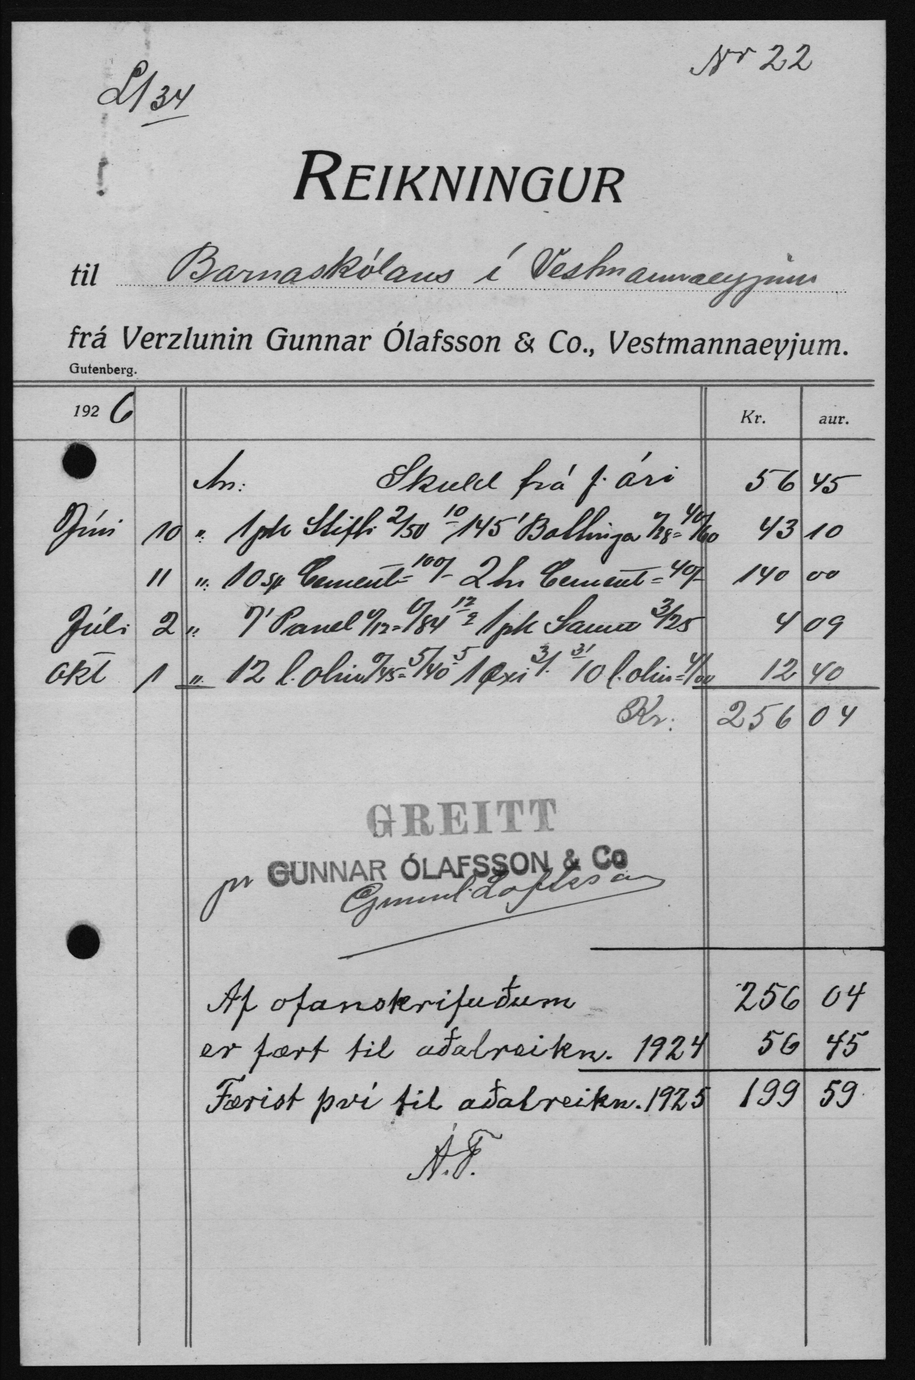 Nr 22
34
REIKNINGUR
til Barnaskólans í Vestmannaeyjum
frá Verzlunin Gunnar Ólafsson & Co., Vestmannaeyjum.
Gutenberg.
1926 Kr. aur.
An: Skuld frá f. ári 56 45
Júni 10 " 1 pk Stifti 2/50 10/- 145' Battinga 0/28= 40/60 43 10
11 " 10 sk Cement= 100/- 2 tn Cement= 40/- 140 00
Júli 2 " 7' Panel 0/12= 0/84 1 pk Saum 3/25 4 09
Okt 1 " 12 l. oliu 0/45= 5/40 1 Öxi 3/- 10 l. oliu= 4/00 12 40
Kr: 256 04
GREITT
pr GUNNAR ÓLAFSSON & Co
Af ofanskrifuðum 256 04
er fært til aðalreikn. 1924 56 45
Færist því til aðalreikn. 1925 199 59
Á.F.